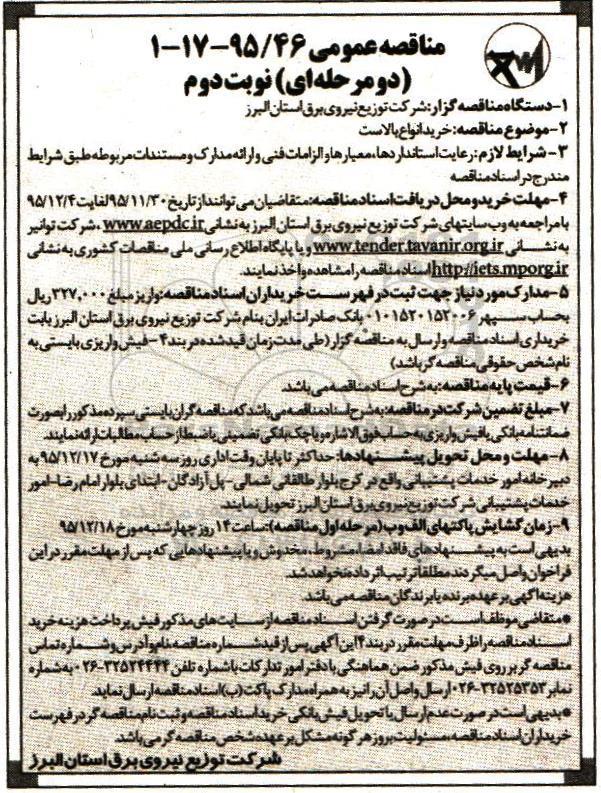 مناقصه عمومی ۹۵/۴۶-۱۷-۱
(دو مرحله‌ای) نوبت دوم
۱-دستگاه مناقصه گزار: شرکت توزیع نیروی برق استان البرز
۲-موضوع مناقصه: خرید انواع بالاست
۳- شرایط لازم: رعایت استانداردها، معیارها و الزامات فنی و ارائه مدارک و مستندات مربوطه طبق شرایط
مندرج در اسناد مناقصه
۴-مهلت خرید و محل دریافت اسناد مناقصه: متقاضیان می توانند از تاریخ ۹۵/۱۱/۳۰ لغایت ۹۵/۱۲/۴
با مراجعه به وب سایتهای شرکت توزیع نیروی برق استان البرز به نشانی www.aepdc.ir، شرکت توانیر
به نشانی www.tender.tavanir.org.ir و یا پایگاه اطلاع رسانی ملی مناقصات کشوری به نشانی
http://iets.mporg.ir اسناد مناقصه را مشاهده و اخذ نمایند.
۵-مدارک مورد نیاز جهت ثبت در فهرست خریداران اسناد مناقصه: واریز مبلغ ۳۲۷,۰۰۰ ریال
بحساب سپهر ۰۱۰۱۵۲۰۱۵۲۰۰۶ بانک صادرات ایران بنام شرکت توزیع نیروی برق استان البرز بابت
خریداری اسناد مناقصه و ارسال به مناقصه گزار (طی مدت زمان قید شده در بند ۴- فیش واریزی بایستی به
نام شخص حقوقی مناقصه گر باشد)
۶- قیمت پایه مناقصه: به شرح اسناد مناقصه می باشد.
۷-مبلغ تضمین شرکت در مناقصه: به شرح اسناد مناقصه می باشد که مناقصه گران بایستی سپرده مذکور را بصورت
ضمانتنامه بانکی یا فیش واریزی به حساب فوق الاشاره و یا چک بانکی تضمینی یا ضبط از حساب مطالبات ارائه نمایند.
۸-مهلت و محل تحویل پیشنهادها: حداکثر تا پایان وقت اداری روز سه شنبه مورخ ۹۵/۱۲/۱۷ به
دبیرخانه امور خدمات پشتیبانی واقع در کرج بلوار طالقانی شمالی-پل آزادگان-ابتدای بلوار امام رضا-امور
خدمات پشتیبانی شرکت توزیع نیروی برق استان البرز تحویل نمایند.
۹-زمان گشایش پاکتهای الف و ب (مرحله اول مناقصه): ساعت ۱۴ روز چهارشنبه مورخ ۹۵/۱۲/۱۸
بدیهی است به پیشنهادهای فاقد امضا، مشروط، مخدوش و یا پیشنهادهایی که پس از مهلت مقرر در این
فراخوان واصل میگردند مطلقا ترتیب اثر داده نخواهد شد.
هزینه آگهی بر عهده برنده یا برندگان مناقصه می باشد.
*متقاضی موظف است در صورت گرفتن اسناد مناقصه از سایت های مذکور فیش پرداخت هزینه خرید
اسناد مناقصه را ظرف مهلت مقرر در بند ۴ این آگهی پس از قید شماره مناقصه نام و آدرس و شماره تماس
مناقصه گر بر روی فیش مذکور ضمن هماهنگی با دفتر امور تدارکات با شماره تلفن ۳۲۵۲۴۴۴۴-۰۲۶ به شماره
نمابر ۳۲۵۲۵۳۵۲-۰۲۶ ارسال و اصل آن را نیز به همراه مدارک پاکت (ب) اسناد مناقصه ارسال نماید.
*بدیهی است در صورت عدم ارسال یا تحویل فیش بانکی خرید اسناد مناقصه و ثبت نام مناقصه گر در فهرست
خریداران اسناد مناقصه، مسئولیت بروز هر گونه مشکل بر عهده شخص مناقصه گر می باشد.
شرکت توزیع نیروی برق استان البرز